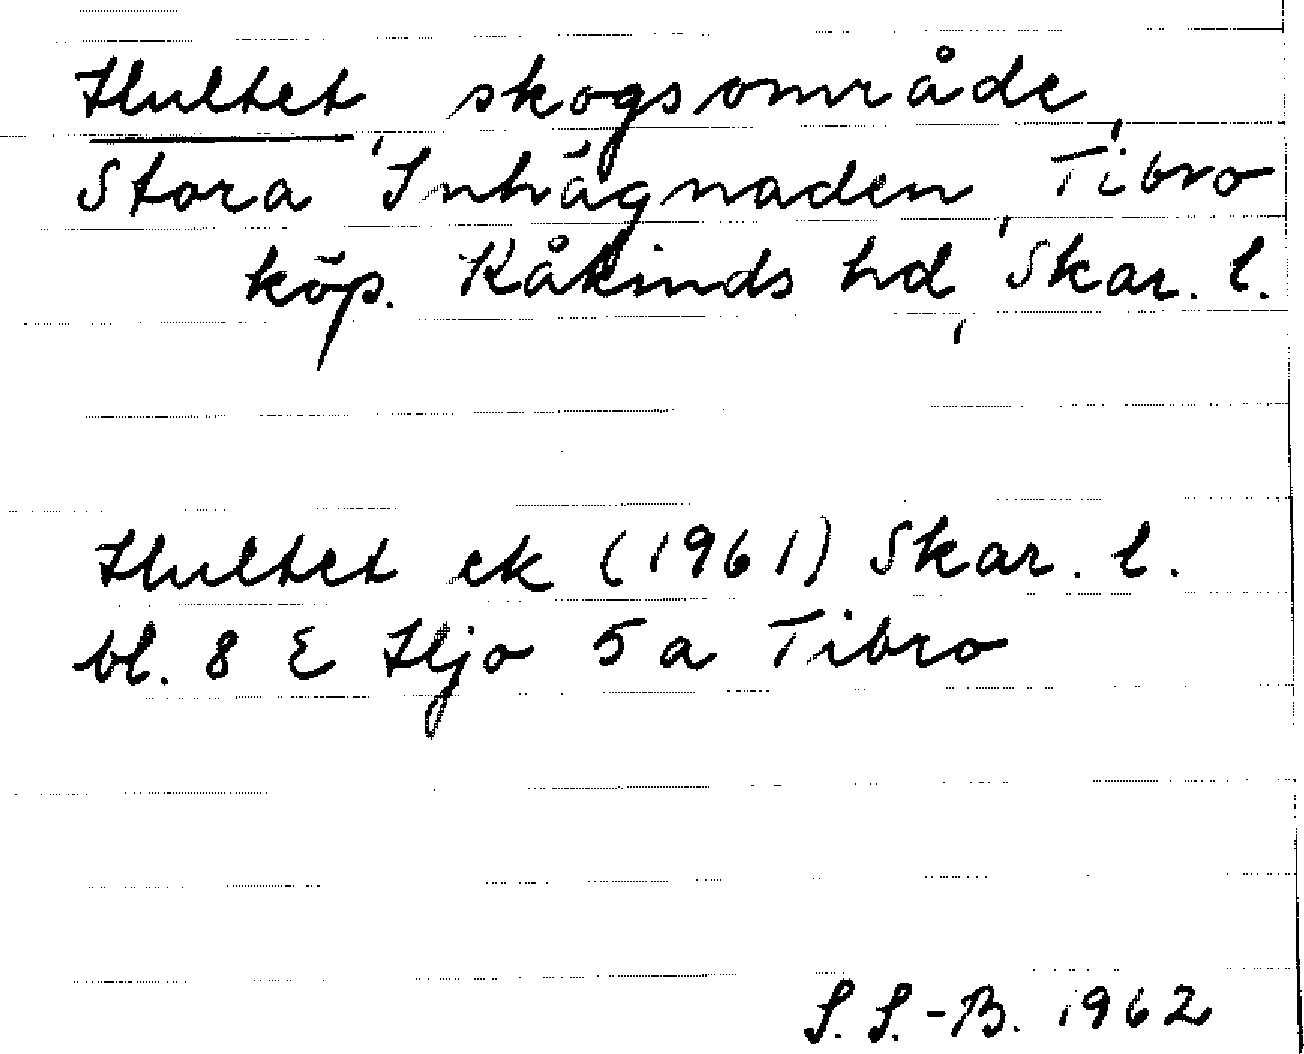 Hultet, skogsområde,
Stora Inhägnaden, Tibro
köp. Kåkinds hd, Skar. l.
Hultet ek (1961) Skar. l.
bl. 8 E Hjo 5 a Tibro
S. S.-B. 1962